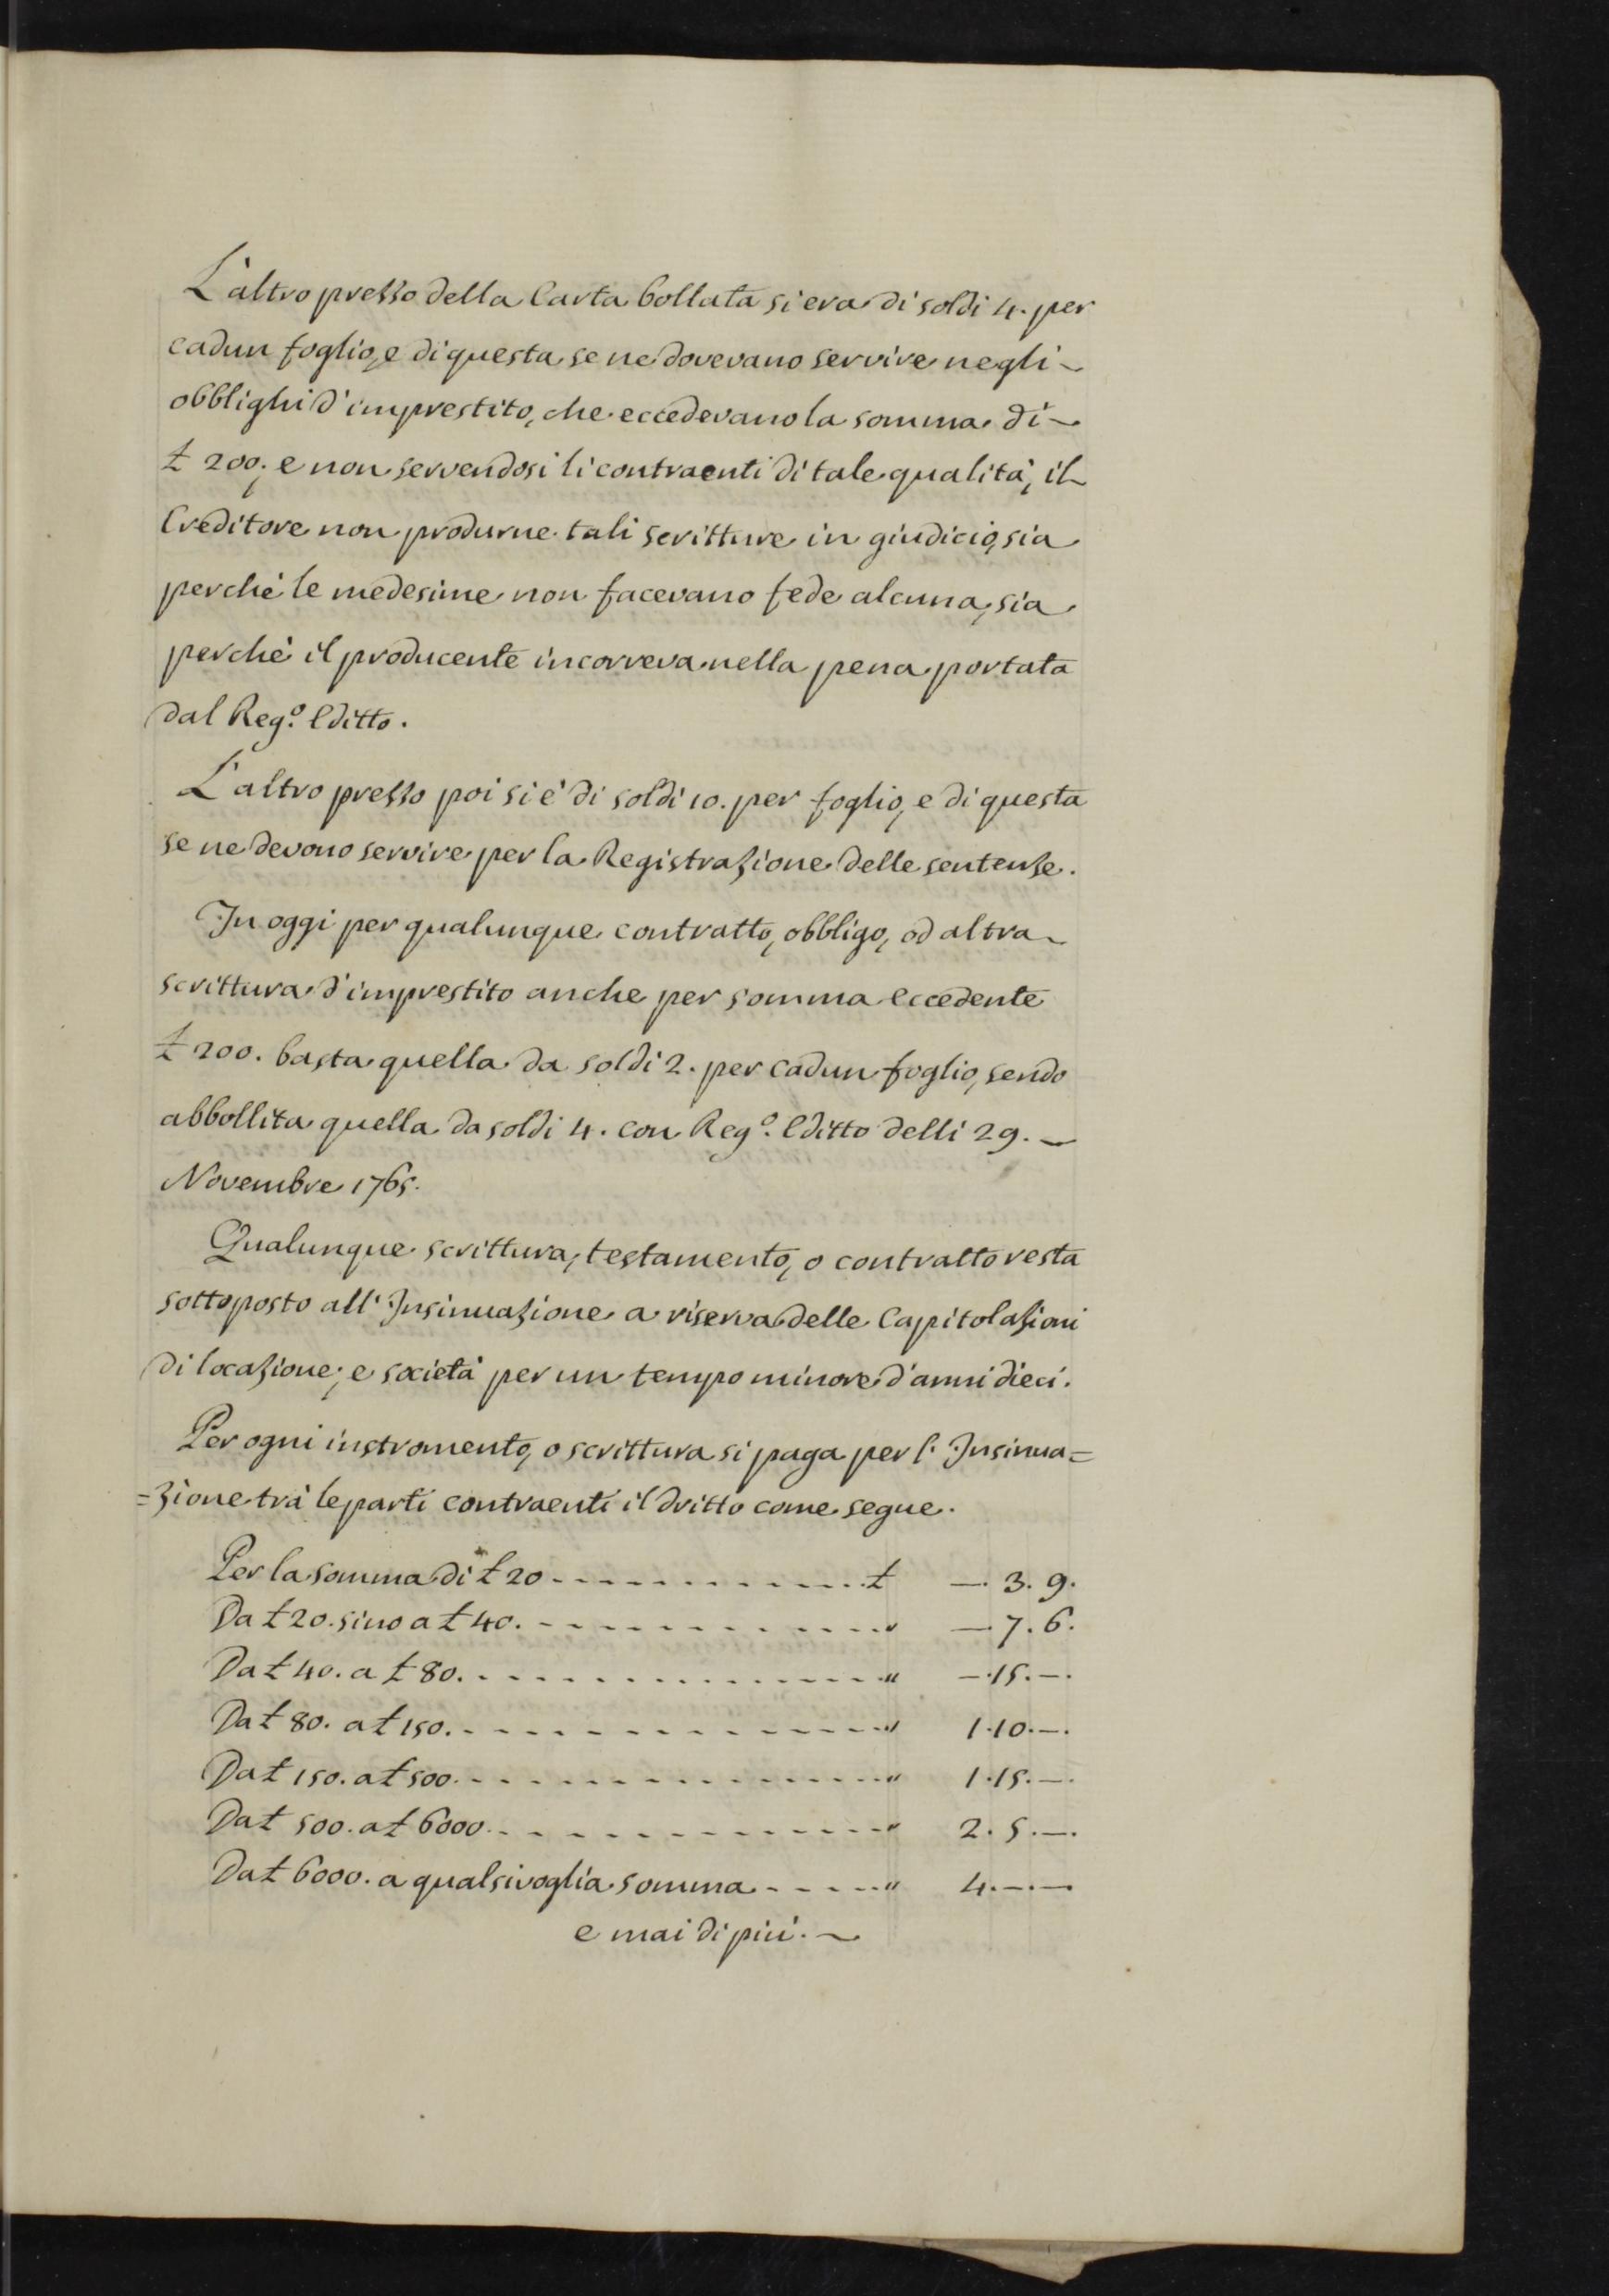 L'altro prezzo della Carta bollata si era di soldi 4. per
cadun foglio, e di questa se ne dovevano servire negli
obblighi d'imprestito, che eccedevano la somma di
£ 200; e non servendosi li contraenti di tale qualità, il
Creditore non produrne tali scritture in giudicio, sia
perché le medesime non facevano fede alcuna, sia
perché il producente incorreva nella pena portata
dal Reg.º Editto.
L'altro prezzo poi si è di soldi 10. per foglio, e di questa
se ne devono servire per la Registrazione delle sentenze.
In oggi per qualunque contratto, obbligo, od altra
scrittura d'imprestito anche per somma eccedente
£ 200. basta quella da soldi 2. per cadun foglio, sendo
abbollita quella da soldi 4. con Reg.º Editto delli 29.
Novembre 1765.
Qualunque scrittura, testamento, o contratto resta
sottoposto all'Insinuazione a riserva delle Capitolazioni
di locazione; e società per un tempo minore d'anni dieci.
Per ogni instromento, o scrittura si paga per l'Insinua=
=zione trà le parti contraenti il dritto come segue.
Per la somma di £ 20 - - - - - - - - - - - - £ —. 3. 9.
Da £ 20. sino a £ 40. - - - - - - - - - - - - " —. 7. 6.
Da £ 40. a £ 80. - - - - - - - - - - - - - - " —. 15. —.
Da £ 80. a £ 150. - - - - - - - - - - - - - - " 1. 10. —.
Da £ 150. a £ 500. - - - - - - - - - - - - - - " 1. 15. —.
Da £ 500. a £ 6000. - - - - - - - - - - - - - " 2. 5. —.
Da £ 6000. a qualsivoglia somma - - - - - " 4. —. —
e mai di più.